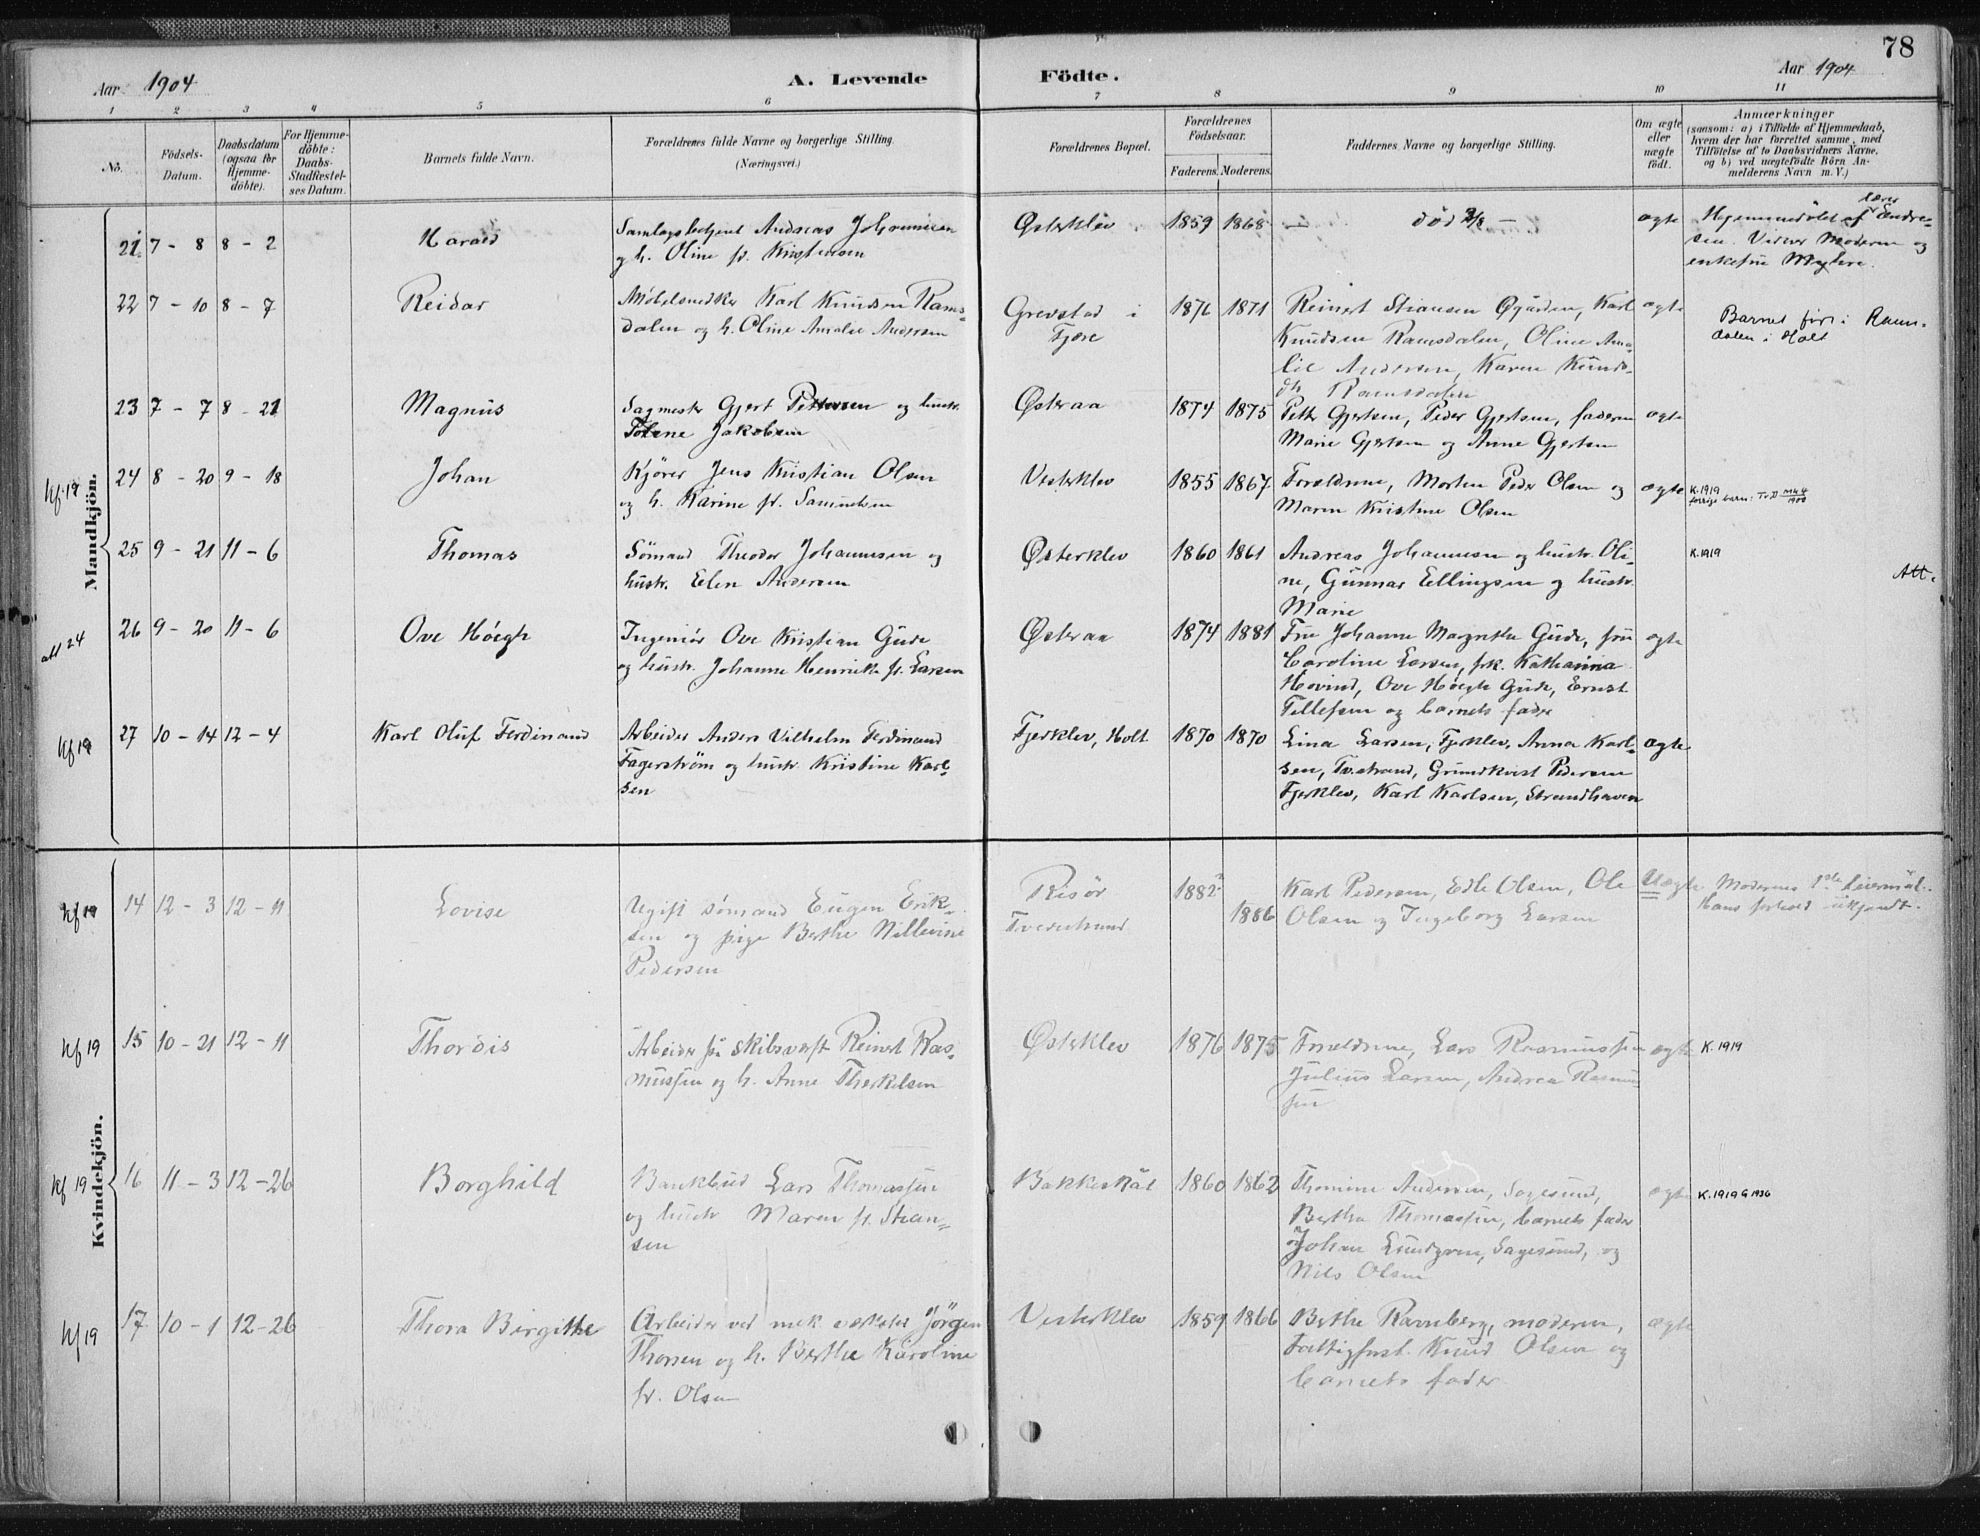 78
Aar 1904 A. Levende Födte. Aar 1904
1 2 3 4 5 6 7 8 9 10 11
No.
Födsels-
Datum.
Daabsdatum
(ogsaa for
Hjemme-
döbte).
For Hjemme-
döbte:
Daabs-
Stadfæstel-
ses Datum.
Barnets fulde Navn.
Forældrenes fulde Navne og borgerlige Stilling.
(Næringsvei.)
Forældrenes Bopæl.
Forældrenes
Födselsaar.
Faderens. Moderens.
Faddernes Navne og borgerlige Stilling.
Om ægte
eller
uægte
födt.
Anmærkninger
(saasom: a) i Tilfælde af Hjemmedaab,
hvem der har forrettet samme, med
Tilföielse af to Daabsvidners Navne,
og b) ved uægtefödte Börn An-
melderens Navn m. V.)
Mandkjön.
21 7 - 8 8 - 2 Harald
Samlagsbetjent Andreas Johannisen
og h. Oline f. Kristensen
Østerklev 1859 1868 død - ægte
Hjemmedøbt af Endre-
sen. Vidner Moderen og
enkefrue Myhre.
22 7 - 10 8 - 7 Reidar
Møbelsnedker Karl Knudsen Rams-
dalen og h. Oline Amalie Andersen
Grevstad i
Fjære
1876 1871
Reinert Stiansen Øgården, Karl
Knudsen Ramsdalen, Oline Ama-
lie Andersen, Karen Knuds-
dt. Ramsdalen
ægte
Barnet født i Rams-
dalen i Holt
23 7 - 7 8 - 21 Magnus
Sagmester Gjert Pettersen og hustr.
Tolene Jakobsen
Østeraa 1874 1875
Petter Gjertsen, Peder Gjertsen, faderen
Marie Gjertsen og Anne Gjertsen
ægte
kf 19
24 8 - 20 9 - 18 Johan
Kjører Jens Kristian Olsen
og h. Karine f. Samuelsen
Vesterklev 1855 1867
Forældrene, Morten Peder Olsen og
Maren Kristine Olsen
ægte
K. 1919
25 9 - 21 11 - 6 Thomas
Sömand Theodor Johannesen og
hustr. Elen Andersen
Østerklev 1860 1861
Andreas Johannesen og hustr. Oli-
ne, Gunnar Ellingsen og hustr.
Marie
K. 1919
Att.
att 24
26 9 - 20 11 - 6 Ove Höegh
Ingeniör Ove Kristian Gude
og hustr. Johanne Henrikke f. Larsen
Østeraa 1874 1881
Fru Johanne Margrethe Gude, fru
Caroline Larsen, frk. Katharina
Hovind, Ove Höegh Gude, Ernst
Tellefsen og barnets fader
ægte
kf 19
27 10 - 14 12 - 4 Karl Oluf Ferdinand
Arbeider Anders Vilhelm Ferdinand
Fagerström og hustr. Kristine Karl-
sen
Fjerklev, Holt 1870 1870
Lina Larsen, Fjerklev, Anna Karl-
sen, Tv.strand, Grundkvist Pedersen
Fjerklev, Karl Karlsen, Strandhaven
ægte
Kvindekjön.
kf 19
14 12 - 3 12 - 11 Lovise
Ugift sömand Eugen Erik-
sen og pige Berthe Nillevine
Pedersen
Risör
Tvedestrand
1882
1886
Karl Pedersen, Edle Olsen, Ole
Olsen og Ingeborg Larsen
Uægte
Moderens 1ste leiermål.
Hans forhold ukjendt.
kf 19
15 10 - 21 12 - 11 Thordis
Arbeider på skibsværft Reinert Ras-
mussen og h. Anne Therkelsen
Østerklev 1876 1875
Forældrene, Lars Rasmussen
Julius Larsen, Andrea Rasmus-
sen
ægte K. 1919
kf 19
16 11 - 3 12 - 26 Borghild
Bankbud Lars Thomassen
og hustr Maren f. Stian-
sen
Bakkeskåt 1860 1862
Thomine Andersen, Sagesund,
Bertha Thomassen, barnets fader
og Johan Lundgren, Sagesund, og
Nils Olsen
ægte K. 1919 G 1936
kf 19
17 10 - 1 12 - 26 Thora Birgithe
Arbeider ved mek værksted Jörgen
Thorsen og h. Berthe Karoline
f. Olsen
Vesterklev 1859 1866
Berthe Ravnberg, moderen,
Fattigforst. Knud Olsen og
barnets fader
ægte